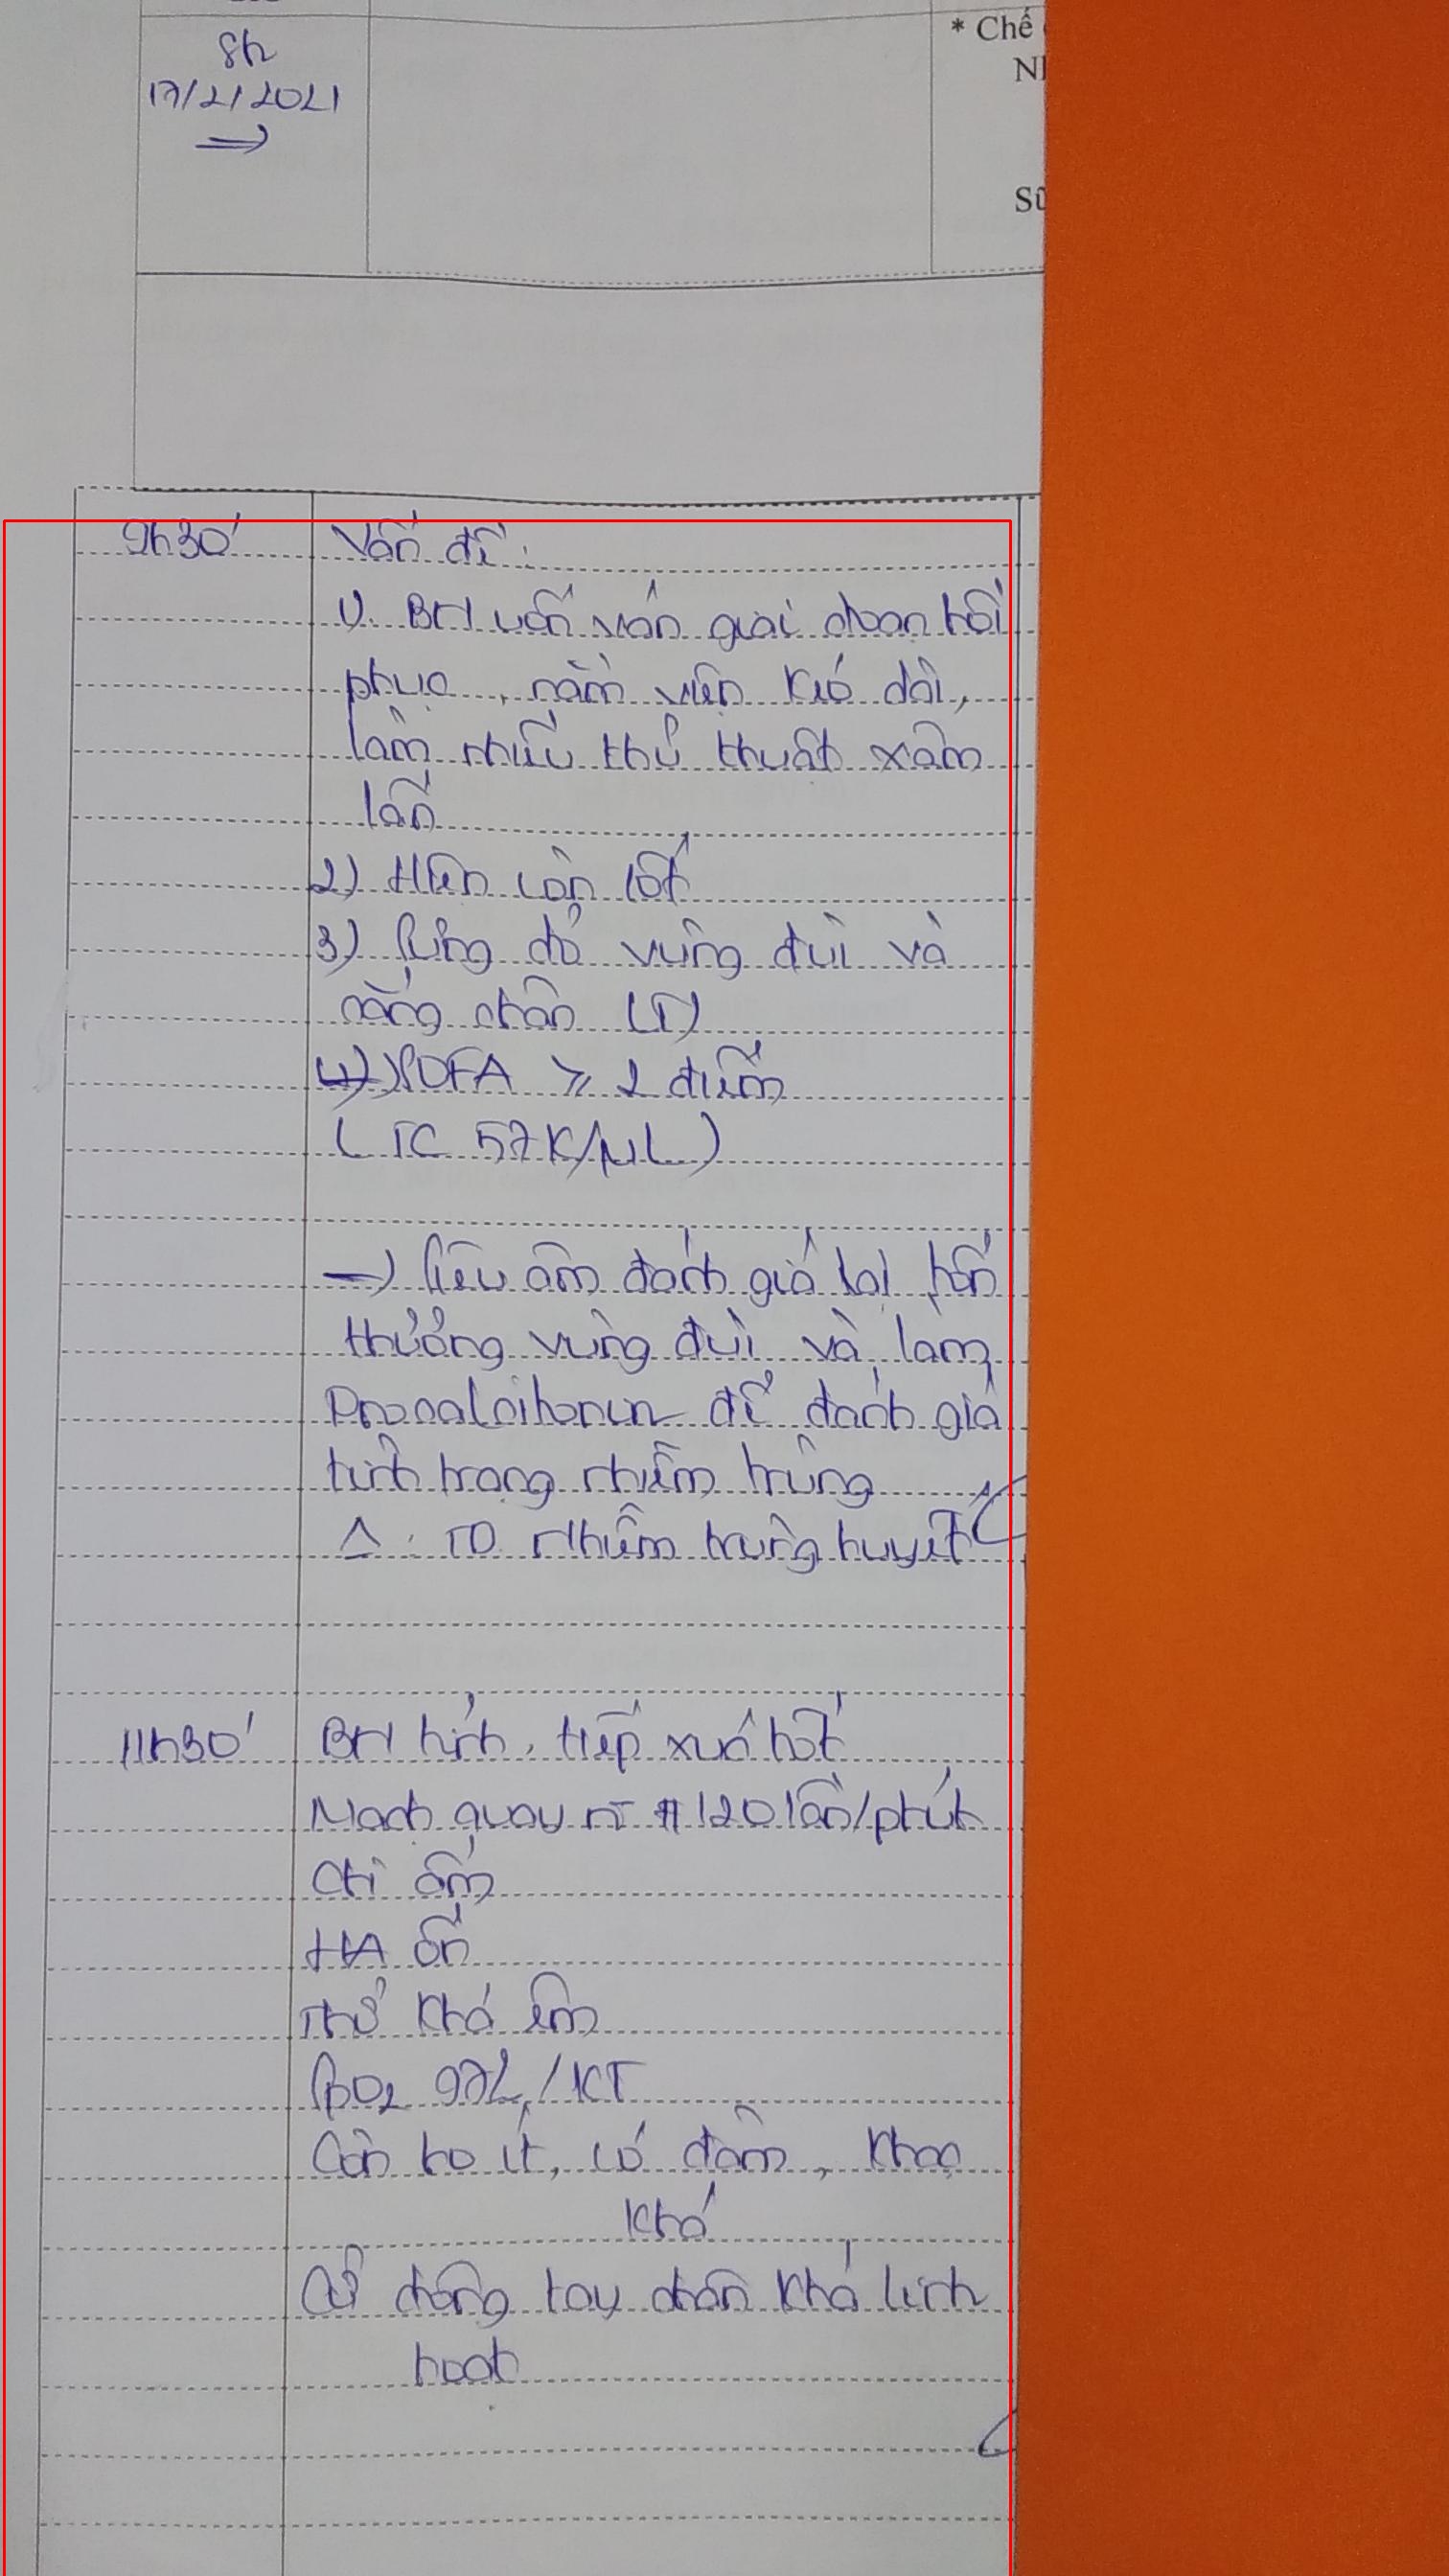 8h
17/2/2021
* Chế
Sữ
9h30' Vấn đề:
1). BN uốn ván giai đoạn hồi
phục, nằm viện kéo dài,
làm nhiều thủ thuật xâm
lấn
2) Hiện còn sốt
3) Sưng đỏ vùng đùi và
cẳng chân (T)
4) SOFA ≥ 2 điểm
(TC 57K/µL)
→ Siêu âm đánh giá lại tổn
thương vùng đùi và làm
Procalcitonin để đánh giá
tình trạng nhiễm trùng
Δ: TD Nhiễm trùng huyết
11h30' BN tỉnh, tiếp xúc tốt
Mạch quay rõ # 120 lần/phút
Chi ấm
HA ổn
Thở khá êm
SpO2 97%/KT
Còn ho ít, có đàm, khạc
khá
Cử động tay chân khá linh
hoạt